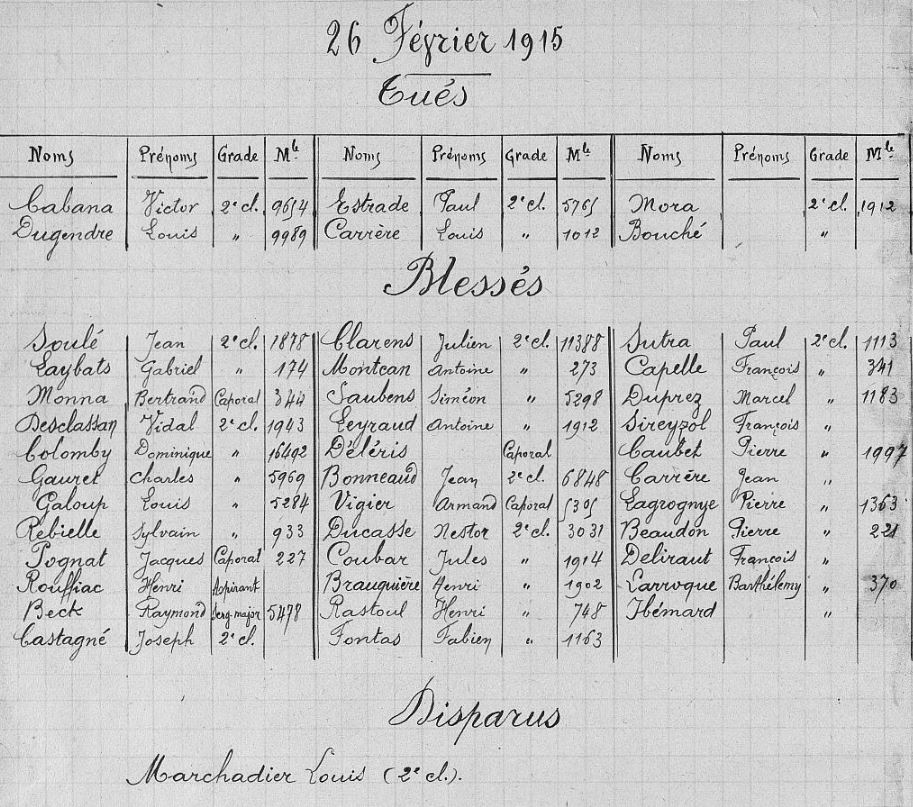 26 Février 1915
Tués
Noms Prénoms Grade Mle Noms Prénoms Grade Mle Noms Prénoms Grade Mle
Cabana Victor 2e cl. 9654 Estrade Paul 2e cl. 5765 Mora 2e cl. 1912
Dugendre Louis " 9989 Carrère Louis " 1012 Bouché "
Blessés
Soulé Jean 2e cl. 1878 Clarens Julien 2e cl. 11388 Sutra Paul 2e cl. 1113
Laybats Gabriel " 174 Montcan Antoine " 273 Capelle François " 341
Monna Bertrand Caporal 344 Saubens Siméon " 5298 Duprez Marcel " 1183
Desclassan Vidal 2e cl. 1943 Leyraud Antoine " 1912 Sireyzol François "
Colomby Dominique " 16492 Déléris Caporal Caubet Pierre " 1997
Gauret Charles " 5969 Bonneaud Jean 2e cl. 6848 Carrère Jean "
Galoup Louis " 5284 Vigier Armand Caporal 5305 Lagrognye Pierre " 1363
Rebielle Sylvain " 933 Ducasse Nestor 2e cl. 3031 Beaudon Pierre " 221
Pognat Jacques Caporal 227 Coubar Jules " 1914 Deliraut François "
Rouffiac Henri Aspirant Brauquière Henri " 1902 Larroque Barthélemy " 370
Beck Raymond Serg. major 5478 Rastoul Henri " 748 Ibémard "
Castagné Joseph 2e cl. Fontas Fabien " 1163
Disparus
Marchadier Louis (2e cl.).